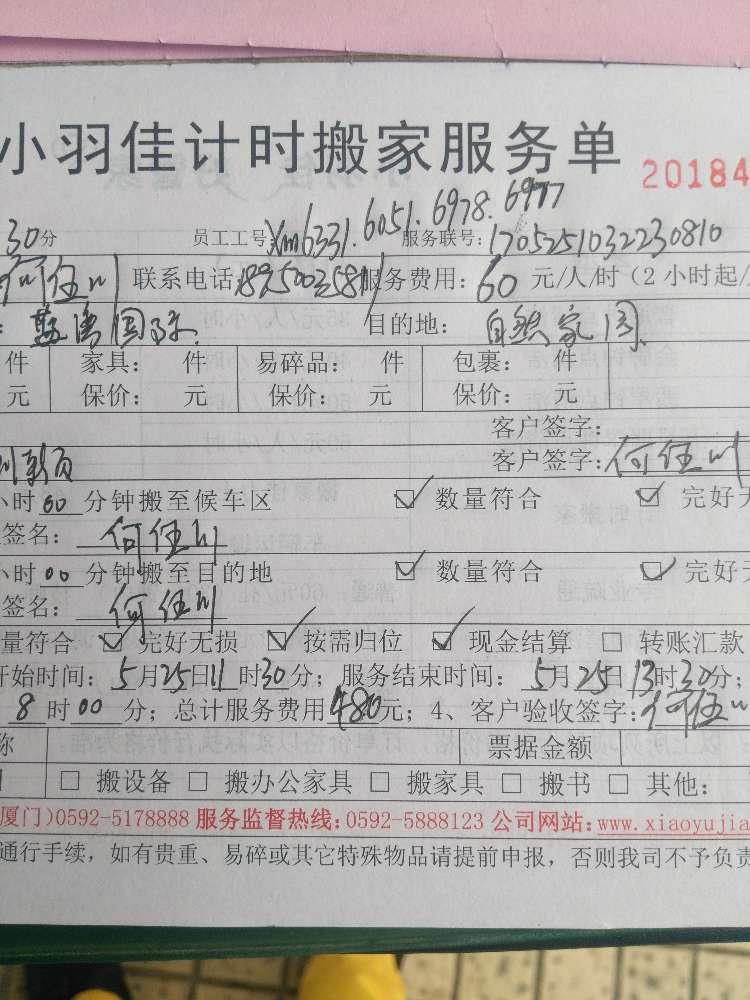 小羽佳计时搬家服务单
20184
30分 员工工号:Xm6331.6051.6978.6977 服务联号:1705251032230810
何任川 联系电话: 服务费用:60元/人/时(2小时起/
: 目的地:自然家园
件 家具: 件 易碎品: 件 包裹: 件
元 保价: 元 保价: 元 保价: 元
客户签字:
客户签字:何任川
小时60分钟搬至候车区 ☑数量符合 ☑完好无
签名:何任川
小时00分钟搬至目的地 ☑数量符合 ☑完好无
签名:何任川
量符合 ☑完好无损 ☑按需归位 ☑现金结算 □转账汇款
开始时间:5月25日11时30分;服务结束时间:5月25日13时30分;
8时00分;总计服务费用480元;4、客户验收签字:何任川
称 票据金额
□搬设备 □搬办公家具 □搬家具 □搬书 □其他:
厦门)0592-5178888 服务监督热线:0592-5888123 公司网站:www.xiaoyujia
通行手续,如有贵重、易碎或其它特殊物品请提前申报,否则我司不予负责